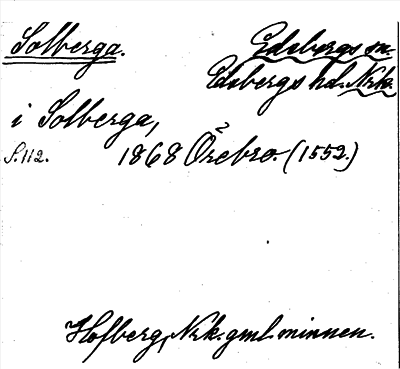 Solberga.
Edsbergs sn.
Edsbergs hd. Nrk.
i Solberga,
S. 112. 1868 Örebro. (1552.)
Hofberg, Nrk. gml. minnen.